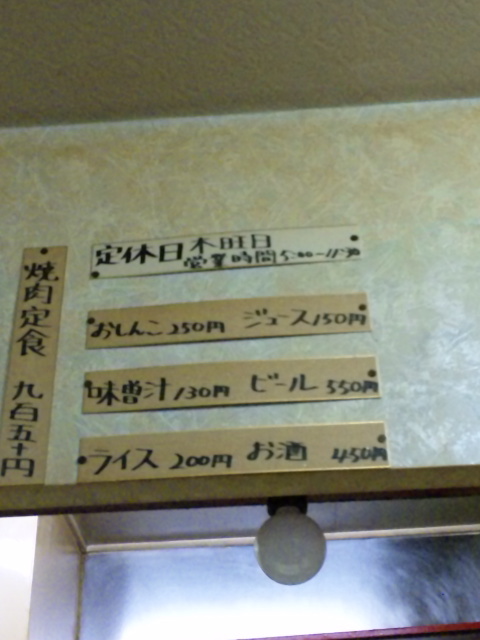 定休日 木曜日
営業時間 5:00-11:30
おしんこ 250円 ジュース 150円
味噌汁 130円 ビール 550円
ライス 200円 お酒 450円
焼肉定食 九百五十円